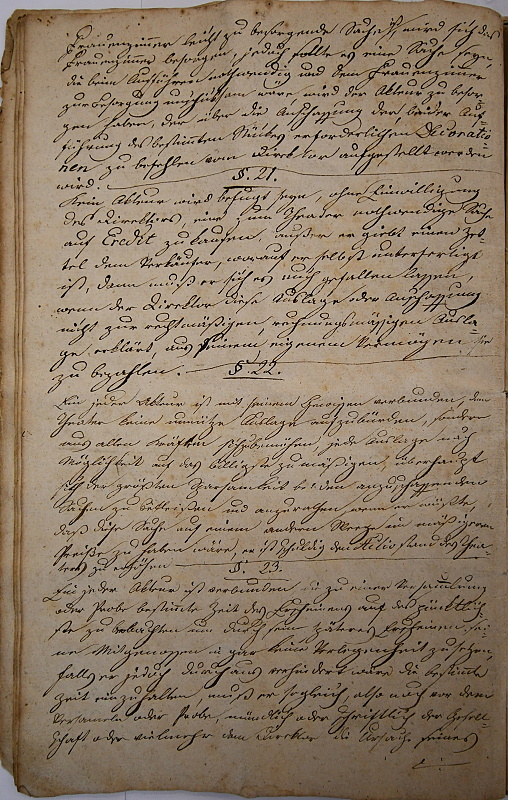 Frauenzimmer leicht zu besorgende Sache ist, wird sich das
Frauenzimmer besorgen, jedoch sollte es eine Sache seyn,
die beim Aufführen nothwendig und dem Frauenzimmer
zur Besorgung wäre wird der Akteur zu besor-
gen haben, der über die Anschaffung der beider Auf-
führung des bestimmten Stückes erforderlichen Decoratio-
nen zu befehlen vom Direktor aufgestellt werden
wird.
§. 21.
Kein Akteur wird befugt seyn, ohne Einwilligung
des Direktors, eine zum Theater nothwendige Sache
auf Credit zu kaufen, außer er giebt einen Zet-
tel dem Verkäufer, worauf er selbst unterfertigt
ist, dann muß er sich es auch gefallen lassen,
wenn der Direktor diese Auslage oder Anschaffung
nicht zur rechtmäßigen, rechnungsmäßigen Ausla-
ge erklärt, aus seinem eigenem Vermögen sie
zu bezahlen.
§. 22.
Ein jeder Akteur ist mit seinem verbunden, dem
Theater keine unnütze Auslage aufzubürden, sondern
aus allen Kräften jede Auslage nach
Möglichkeit auf das billigste zu mäßigen, überhaupt
sich der größten Sparsamkeit bei den anzuschaffenden
Sachen zu befleißen und anzurathen wenn er wüßte,
daß diese Sache auf einem andern Wege in mäßigerem
Preiße zu haben wäre, er ist schuldig den des Thea-
ters zu erhöhen
§. 23.
Ein jeder Akteur ist verbunden die zu einer Versamlung
oder Probe bestimmte Zeit des Erscheinens auf das pünktlich-
ste zu beobachten um durch sein späteres Erscheinen sei-
ne Mitgenossen in gar keine Verlegenheit zu setzen,
falls er jedoch durchaus verhindert wäre die bestimmte
Zeit einzuhalten, muß er sogleich, also noch vor dem
Versameln oder Probe, mündlich oder schriftlich der Gesell-
schaft oder vielmehr dem Direktor die Ursache seines